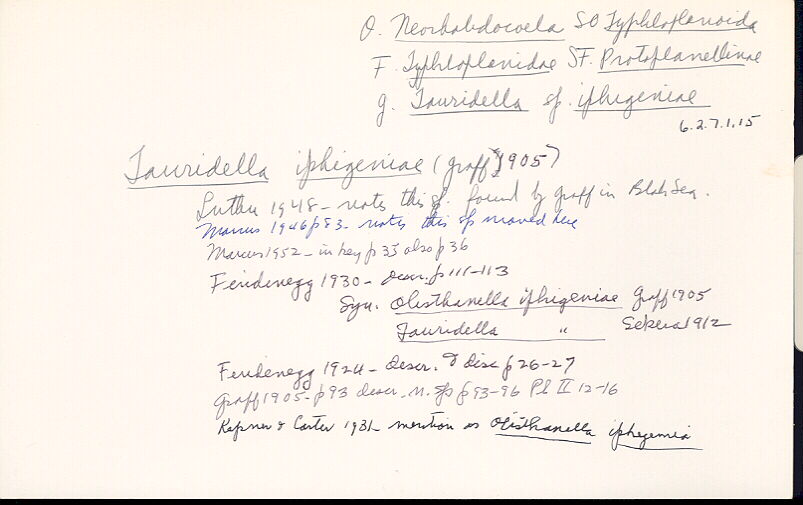 O. Neorhabdocoela SO Typhloplanoida
F. Typhloplanidae SF. Protoplanellinae
g. Tauridella sp. iphigeniae
6.2.7.1.15
Tauridella iphigeniae (Graff, 1905)
Luther 1948 - notes this sp. found by Graff in Black Sea.
Marcus 1946 p 83 - notes this sp moved here
Marcus 1952 - in key p 35 also p 36
Findenegg 1930 - Descr. p 111-113
Syn. Olisthanella iphigeniae Graff 1905
Tauridella " Sekera 1912
Findenegg 1924 - Descr. & disc p 26-27
Graff 1905 - p 93 descr. n. sp p 93-96 Pl II 12-16
Kepner & Carter 1931 - mention as Olisthanella iphegemia